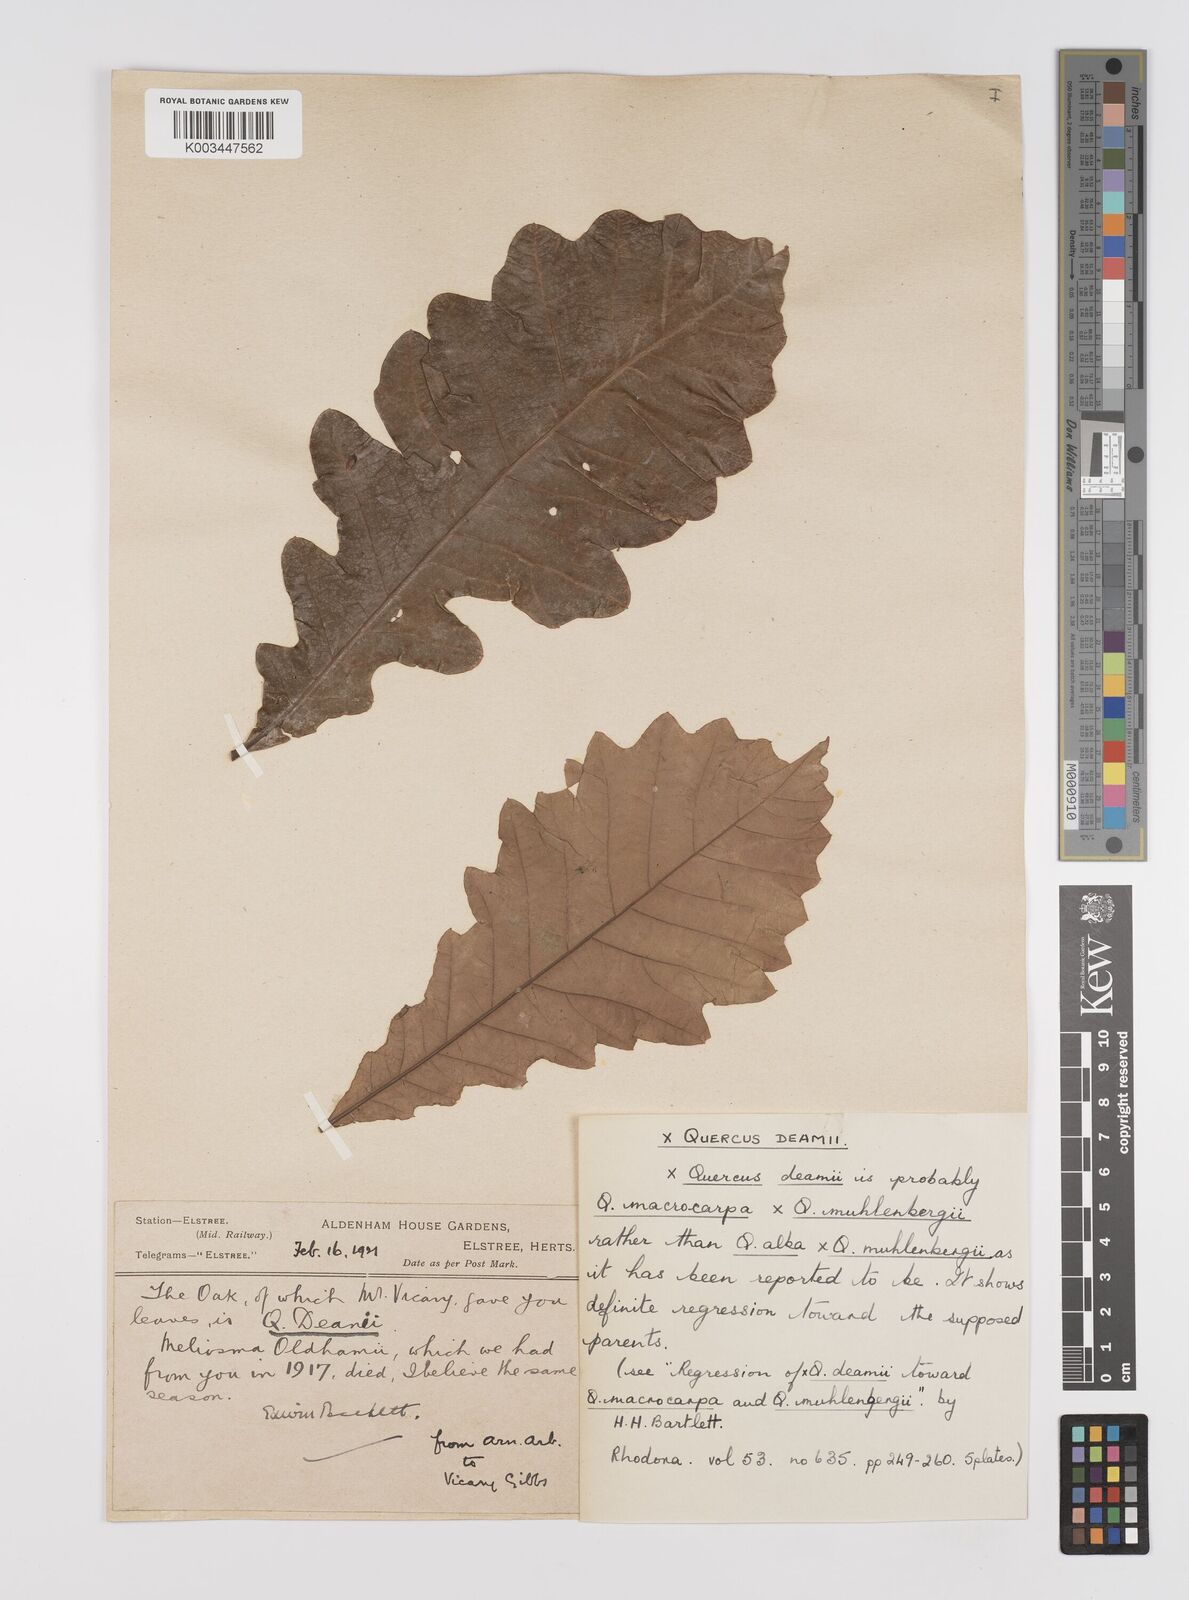 ROYAL BOTANIC GARDENS KEW
K003447562
I
× QUERCUS DEAMII.
× Quercus deamii is probably
Q. macrocarpa × Q. muhlenbergii
rather than Q. alba × Q. muhlenbergii as
it has been reported to be. It shows
definite regression toward the supposed
parents.
(see "Regression of × Q. deamii toward
Q. macrocarpa and Q. muhlenbergii". by
H. H. Bartlett.
Rhodora. vol 53. no 635. pp 249-260. 5 plates.)
Station—ELSTREE.
(Mid. Railway.)
Telegrams—"ELSTREE."
ALDENHAM HOUSE GARDENS,
ELSTREE, HERTS.
Feb. 16, 1921
Date as per Post Mark.
The Oak, of which Mr. Vicary, gave you
leaves, is Q. Deamii.
Meliosma Oldhamii, which we had
from you in 1917, died, I believe the same
season.
Edwin Beckett.
from Arn. Arb.
to
Vicary Gibbs
inches
centimetres
cm
D50 Illuminant, 2 degree observer
Density
Don Williams
M000910
Values are batch averages
Kew
Royal Botanic Gardens
0 1 2 3 4 5 6 7 8 9 10
cm
copyright reserved